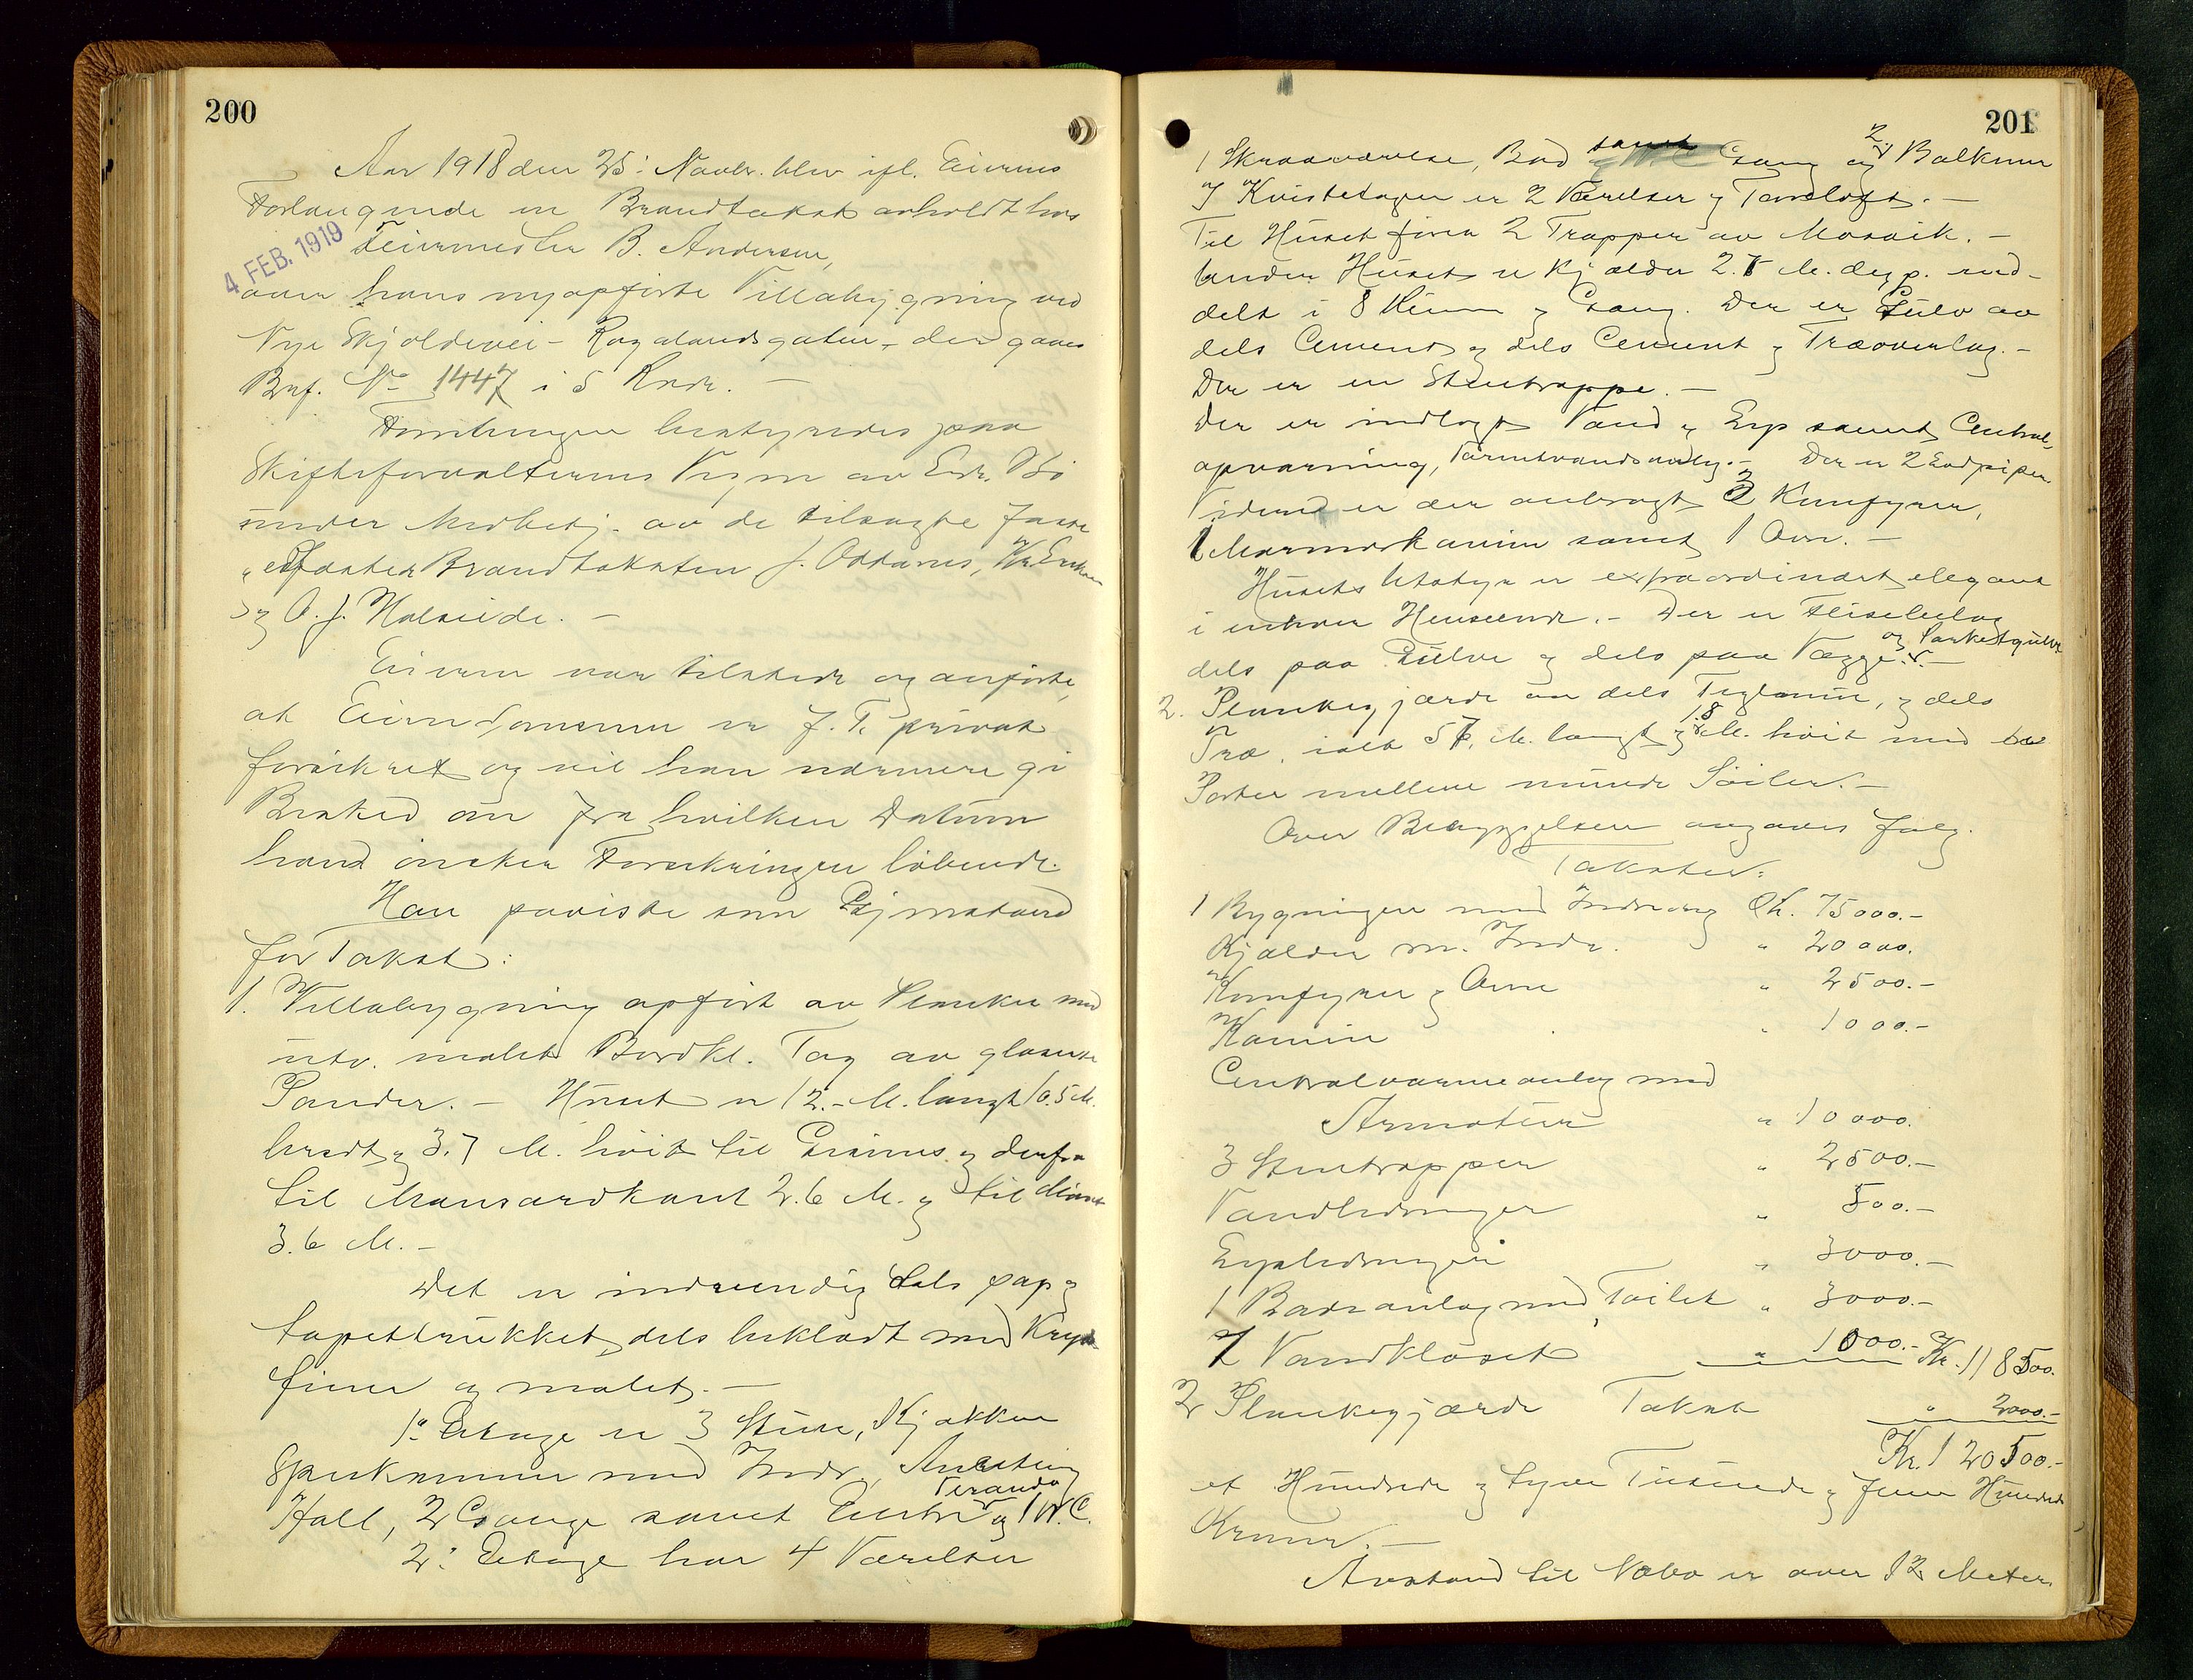 200
Aar 1918 den 25: Novbr. blev ifl. Eierens
Forlangende en Brandtakst avholdt hos
Feiermester B. Andersen,
4 FEB. 1919
over hans nyopførte Villabygning ved
Nye Skjoldevei - Rogalandsgaten, den gaves
Brf. No 1447 i 5 Rode. -
Forretningen bestyredes paa
Skifteforvalterens Vegne av
under Medbetj. av de tilsagte faste
Brandtakster J. Ottanes, Kr. Eriksen
og O. J. Halseide. -
Eieren var tilstede og anførte,
at Eiendommen er f. T. privat
forsikret og vil han nærmere gi
Besked om fra hvilken Datum
hand ønsker Forsikringen løbende.
Han paaviste som Gjenstand
for Takst:
1. Villabygning opført av Planker med
utv. malet Bordkl. Tag av glaserte
Pander. - Huset er 12.- M. langt 10.5 M.
bredt og 3.7 M. høit til Gesims og derfra
til Mansardkant 2.6 M. og til Mønet
3.6 M. -
Det er indvendig dels pap og
tapettrukket, dels beklædt med Kryds
finer og malet. -
1ste Etage er 3 Stuer, Kjøkken
Spiskammer med Indr., Anretning
Veranda
Hall, 2 Gange samt Entre og 1 W.C.
2: Etage har 4 Værelser
201
1 Skraaværelse, Bad samt Gang og 2 Balkoner
I Kvistetagen er 2 Værelser og Tørreloft. -
Til Huset fører 2 Trapper av Mosaik. -
Under Huset er Kjælder 2.5 M. dyp. ind-
delt i 8 Rum og Gang. Der er Gulv av
dels Cement og dels Cement og Træoverlag. -
Der er en Stentrappe. -
Der er indlagt Vand og Lys samt Central-
opvarmning, Varmtvandsanlæg. - Der er 2 Eldpiper
Videre er der anbragt 3 Komfyrer,
1 Marmorkamin samt 1 Ovn. -
Husets Utstyr er extraordinært elegant
i enhver Henseende. - Der er Flisebelæg
og Parketgulve
dels paa Gulve og dels paa Vægge. -
2. Plankegjærde av dels Teglmur, og dels
Træ, ialt 57, M. langt og 1.8 M. høit med to
Porter mellem murede Søiler. -
Over Bebyggelsen avgaves følg.
Takster:
1 Bygningen med Indredng Kr. 75000.-
Kjælder m. Indr. " 20000.
Komfyrer og Ovn " 2500.-
Kamin " 1000.-
Centralvarmeanlæg med
Armatur " 10000.
3 Stentrapper " 2500.-
Vandledninger " 500.-
Lysledninger " 3000.-
1 Badeanlæg med Toilet " 3000.-
2 Vandkloset " 1000.- Kr. 118500.
2 Plankegjærde Takst " 2000.-
Kr. 120500.-
et Hundrede og tyve Tusinde og fem Hundrede
Kroner. -
Avstand til Nabo er over 12 Meter.